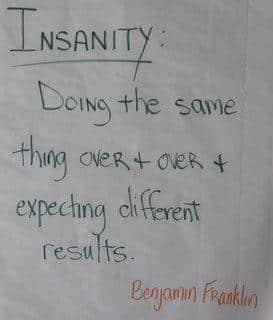 INSANITY:
DOING the same
thing OVER + OVER +
expecting different
results.
Benjamin Franklin